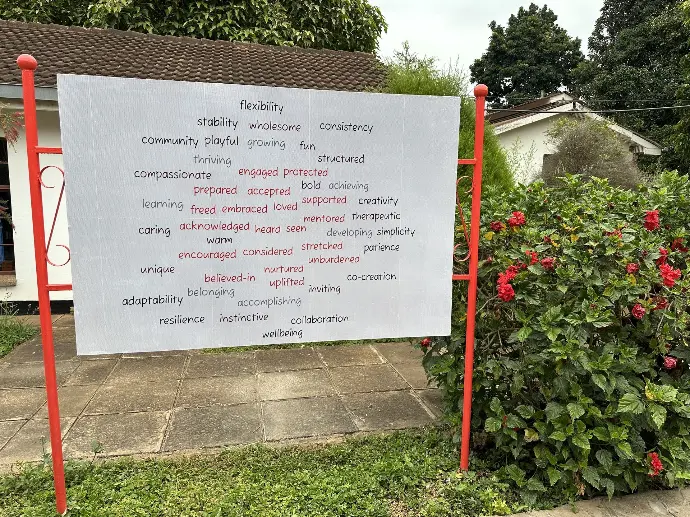 flexibility
stability wholesome consistency
community playful growing fun
thriving structured
compassionate engaged protected
prepared accepted bold achieving
learning freed embraced loved supported creativity
mentored therapeutic
caring acknowledged heard seen developing simplicity
warm
encouraged considered stretched patience
unburdened
unique nurtured
believed-in uplifted co-creation
belonging inviting
adaptability accomplishing
resilience instinctive collaboration
wellbeing